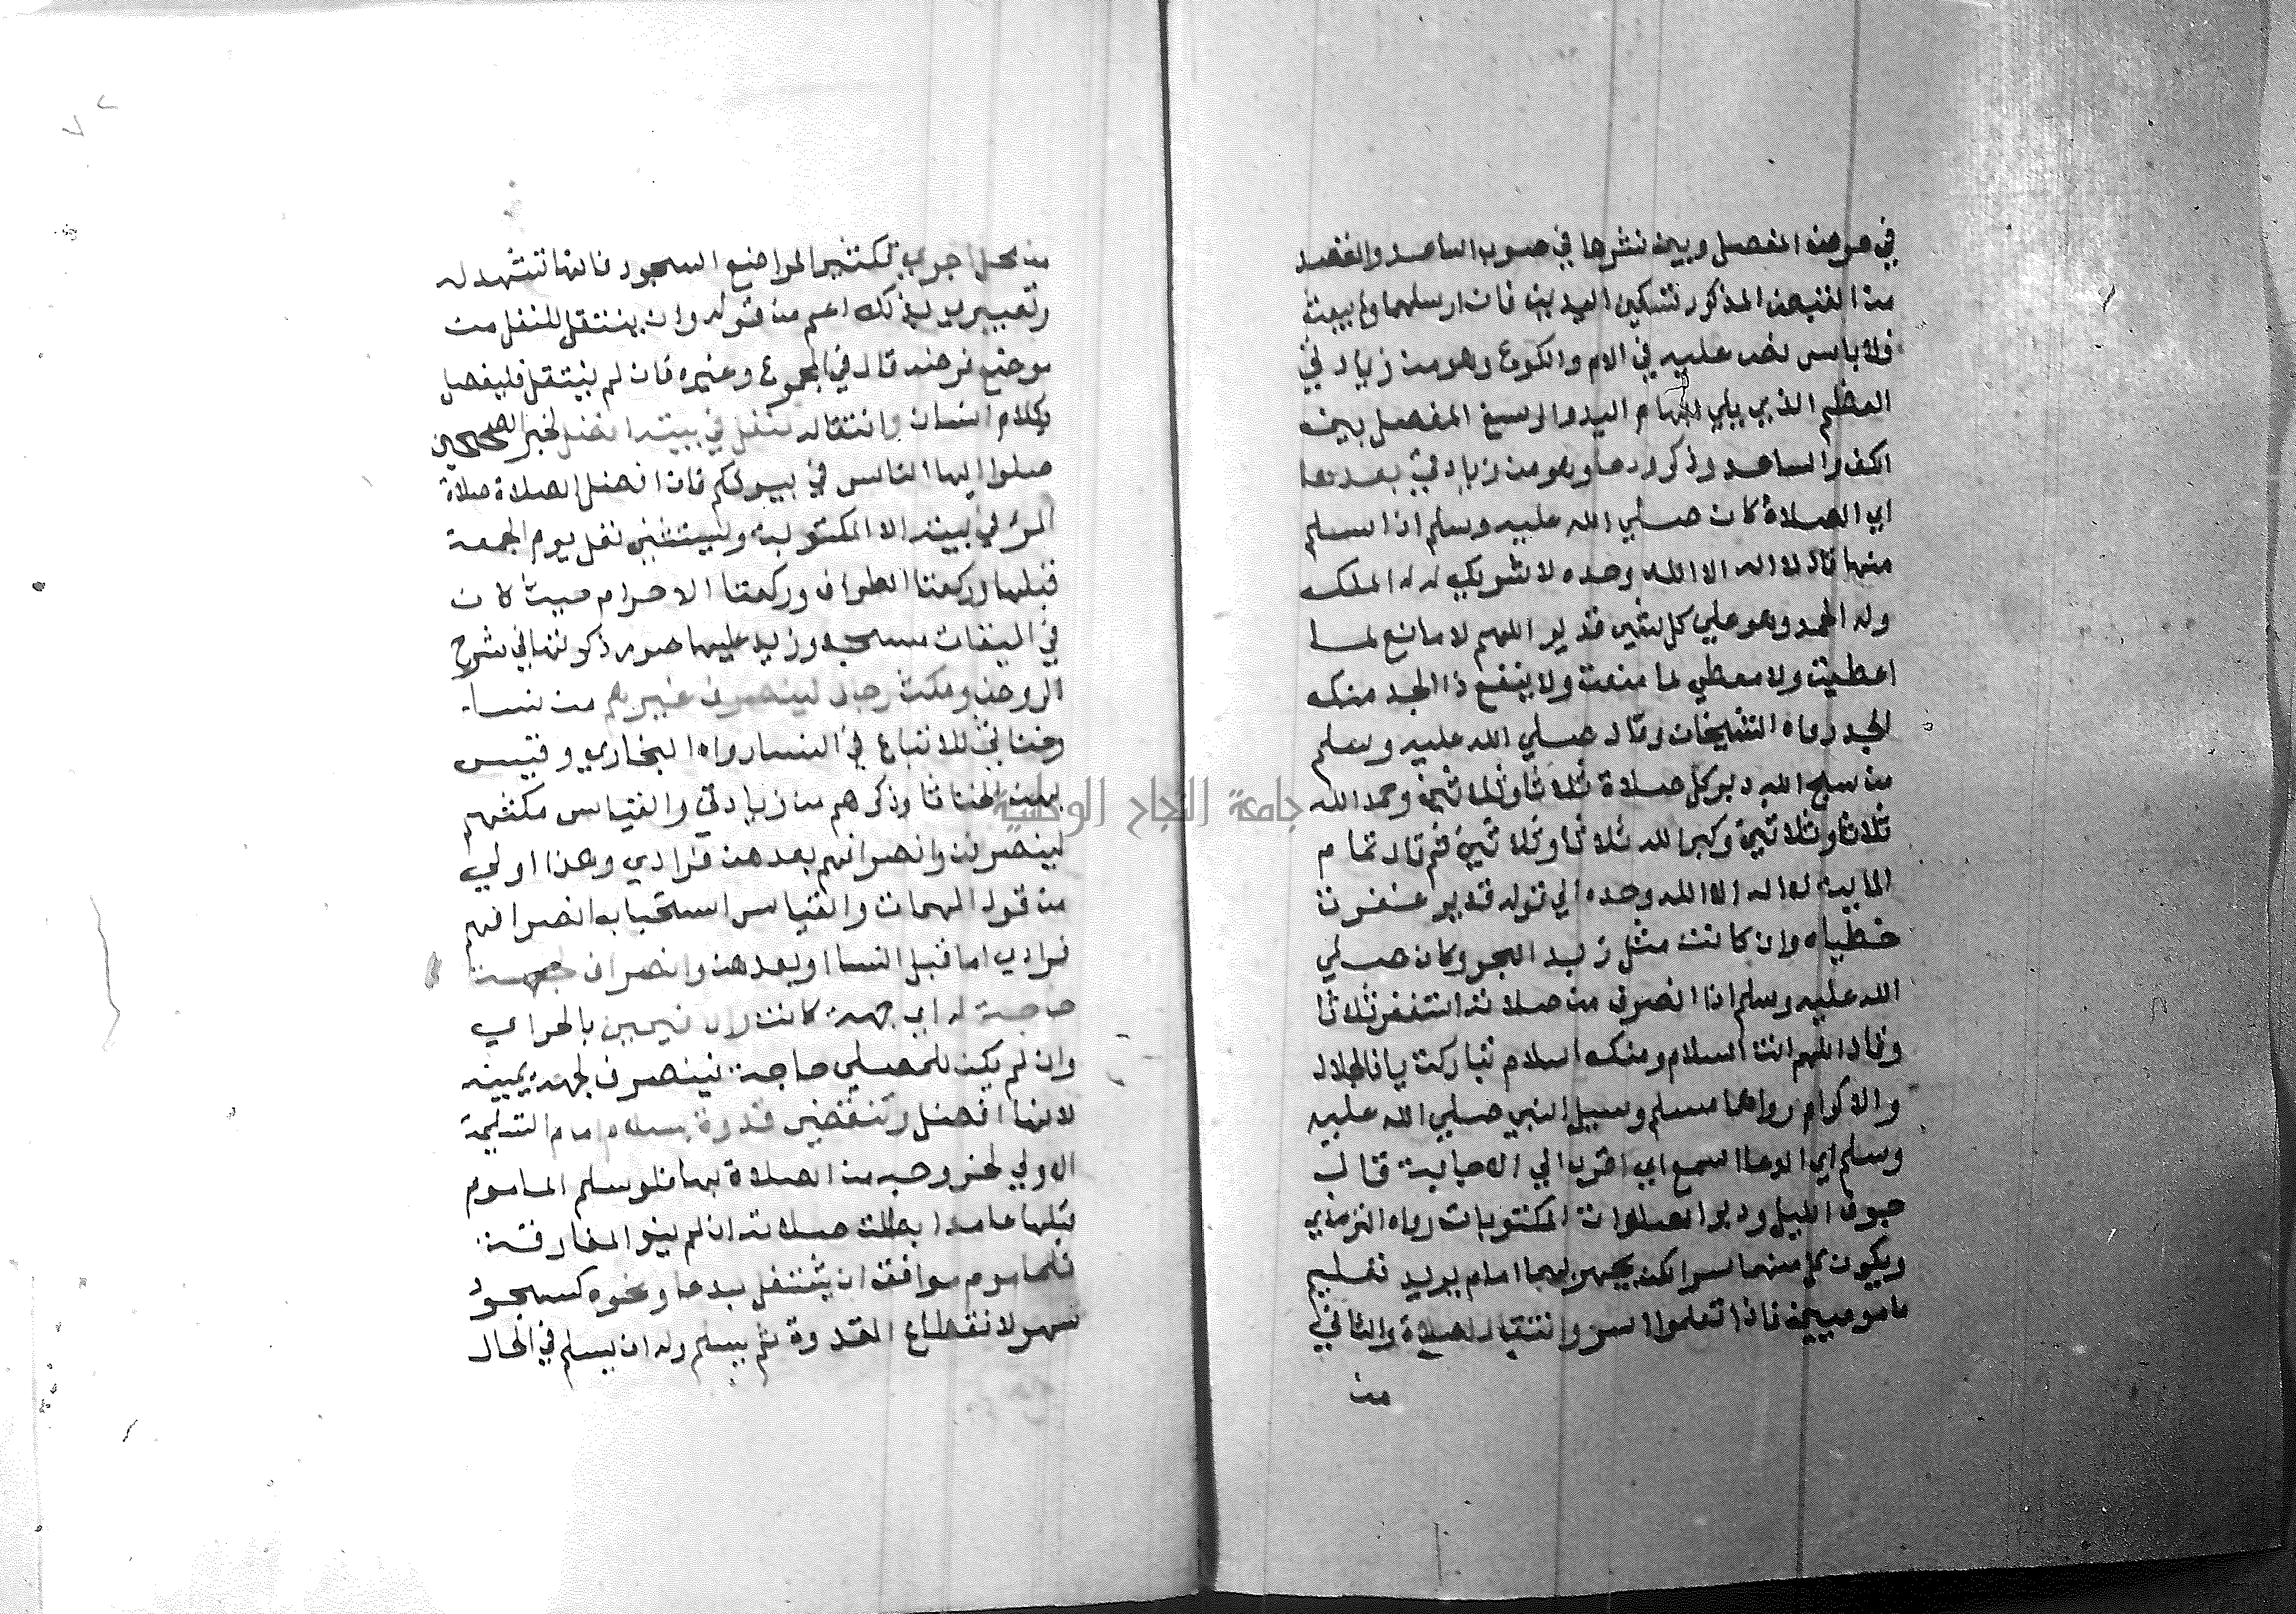 في عرض المفصل وبين نشرها في صوب الساعد والقصد
من القبض المذكور تسكين اليدين فان ارسلهما ولم يعبث
فلا باس نص عليه في الام والكوع وهو من زيادتي
العظم الذي يلي ابهام اليد والرسغ المفصل بين
الكف والساعد وذكر ودعا وهو من زيادتي بعدها
اي الصلاة كان صلي الله عليه وسلم اذا سلم
منها قال لا اله الا الله وحده لا شريك له له الملك
وله الحمد وهو علي كل شي قدير اللهم لا مانع لما
اعطيت ولا معطي لما منعت ولا ينفع ذا الجد منك
الجد رواه الشيخان وقال صلي الله عليه وسلم
من سبح الله دبر كل صلاة ثلاثا وثلاثين وحمد الله
ثلاثا وثلاثين وكبر الله ثلاثا وثلاثين ثم قال تمام
الماية لا اله الا الله وحده الي قوله قدير غفرت
خطاياه وان كانت مثل زبد البحر وكان صلي
الله عليه وسلم اذا انصرف من صلاته استغفر ثلاثا
وقال اللهم انت السلام ومنك السلام تباركت يا ذا الجلال
والاكرام رواهما مسلم وسيل النبي صلي الله عليه
وسلم اي الدعا اسمع اي اقرب الي الاجابة قال
جوف الليل ودبر الصلوات المكتوبات رواه الترمذي
ويكون كل منهما سرا لكن يجهر بهما امام يريد تعليم
مامومين فاذا تعلموا اسر وانتقال لصلاة والثاني
من
من محل اخري تكثيرا لمواضع السجود فانها تشهد له
وتعبيري بذلك اعم من قوله وان ينتقل للنفل من
موضع فرضه قال في المجموع وغيره فان لم ينتقل فليفصل
بكلام انسان وانتقاله لنفل في بيته افضل لخبر الصحيحين
صلوا ايها الناس في بيوتكم فان افضل الصلاة صلاة
المرء في بيته الا المكتوبة ويستثني نفل يوم الجمعة
قبلها وركعتا الطواف وركعتا الاحرام حيث كان
في الميقات مسجد وزيد عليها صور ذكرتها في شرح
الروض ومكث رجال لينصرف غيرهم من نساء
وخناثي للاتباع في النسا رواه البخاري وقيس
بهن الخناثا وذكرهم من زيادتي والقياس مكثهم
لينصرفن وانصرافهم بعدهن فرادي وهذا اولي
من قول المهمات والقياس استحباب انصرافهم
فرادي اما قبل النسا او بعدهن وانصراف لجهة
حاجة له اي جهة كانت والا فيمين بالجر اي
وان لم يكن للمصلي حاجة فينصرف لجهة يمينه
لانها افضل وتنقضي قدوة بسلام امام التسليمة
الاولي لخروجه من الصلاة بها فلو سلم الماموم
قبلها عامدا بطلت صلاته ان لم ينو المفارقة
فلماموم موافق ان يشتغل بدعا ونحوه كسجود
سهو لانقطاع القدوة ثم يسلم وله ان يسلم في الحال
جامعة النجاح الوطنية